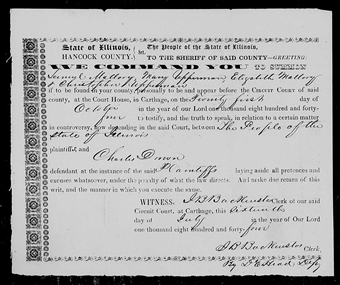 State of Illinois, The People of the State of Illinois,
HANCOCK COUNTY. } Sct. TO THE SHERIFF OF SAID COUNTY—GREETING:
WE COMMAND YOU TO SUMMON
Mallory Mary Upperman, Elizabeth Mallory
& Christopher Upperman
if to be found in your county, personally to be and appear before the CIRCUIT COURT of said
county, at the Court House, in Carthage, on the Twenty first day of
October in the year of our Lord one thousand eight hundred and forty-
four to testify, and the truth to speak, in relation to a certain matter
in controversy, now depending in the said Court, between The People of the
State of Illinois
plaintiff, and
Charles
defendant at the instance of the said Plaintiffs laying aside all pretences and
excuses whatsoever, under the penalty of what the law directs. And make due return of this
writ, and the manner in which you execute the same.
WITNESS, J B Backenstos Clerk of our said
Circuit Court, at Carthage, this Sixteenth
day of July in the year of Our Lord
one thousand eight hundred and forty-four
J B Backenstos Clerk,
By D E Head, Dpy